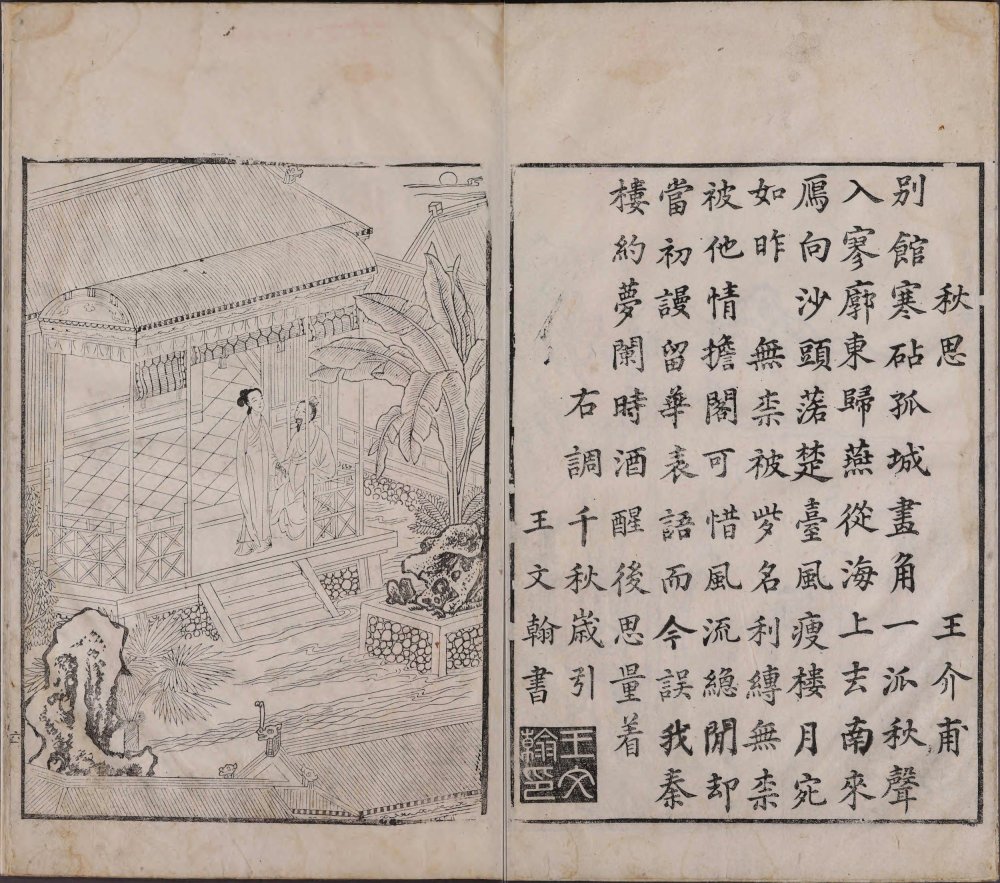 秋思 王介甫
别館寒砧孤城畫角一泒秋聲
入寥廓東歸燕從海上去南來
鴈向沙頭落楚臺風瘦樓月宛
如昨 無柰被些名利縳無柰
被他情擔閣可惜風流總閒却
當初謾留華表語而今誤我秦
樓約夢闌時酒醒後思量着
右調千秋歲引
王文翰書
王文翰印
六